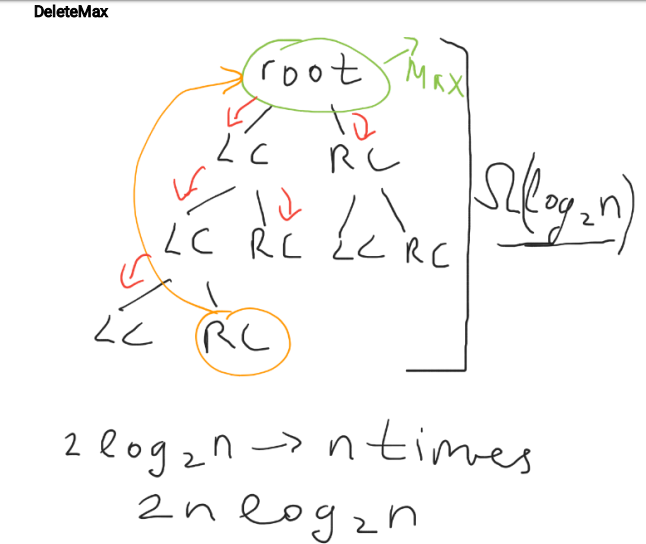 DeleteMax
root
MAX
LC RC
Ω(log₂n)
LC RC LC RC
LC RC
2 log₂n → n times
2n log₂n